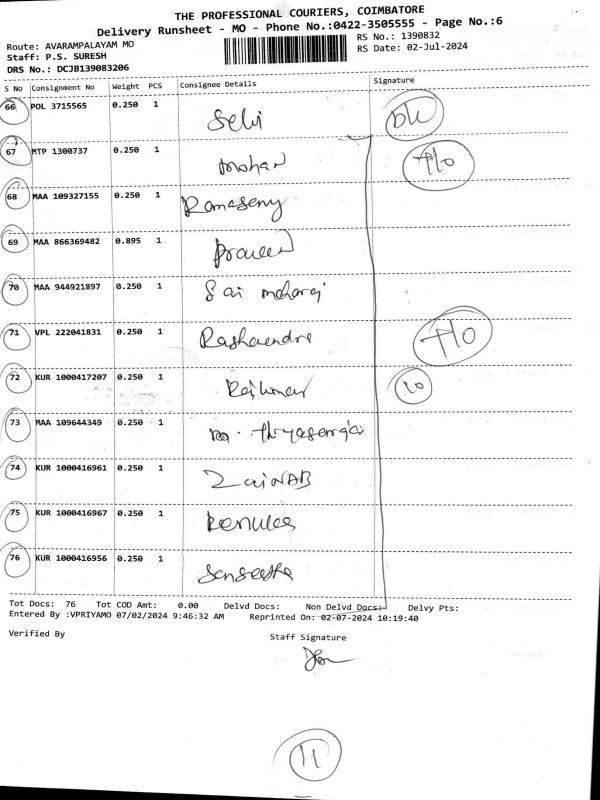 THE PROFESSIONAL COURIERS, COIMBATORE
Delivery Runsheet - MO - Phone No.:0422-3505555 - Page No.:6
Route: AVARAMPALAYAM MO
RS No.: 1390832
Staff: P.S. SURESH
RS Date: 02-Jul-2024
DRS No.: DCJB139083206
S No Consignment No Weight PCS Consignee Details Signature
66 POL 3715565 0.250 1 Selvi
67 MTP 1300737 0.250 1 mohan
68 MAA 109327155 0.250 1
69 MAA 866369482 0.895 1 praveen
70 MAA 944921897 0.250 1 Sai
71 VPL 222041831 0.250 1
72 KUR 1000417207 0.250 1 Rajkumar
73 MAA 109644349 0.250 1
74 KUR 1000416961 0.250 1 ZaiNAB
75 KUR 1000416967 0.250 1
76 KUR 1000416956 0.250 1
Tot Docs: 76 Tot COD Amt: 0.00 Delvd Docs: Non Delvd Docs: Delvy Pts:
Entered By :VPRIYAMO 07/02/2024 9:46:32 AM Reprinted On: 02-07-2024 10:19:40
Verified By
Staff Signature
11